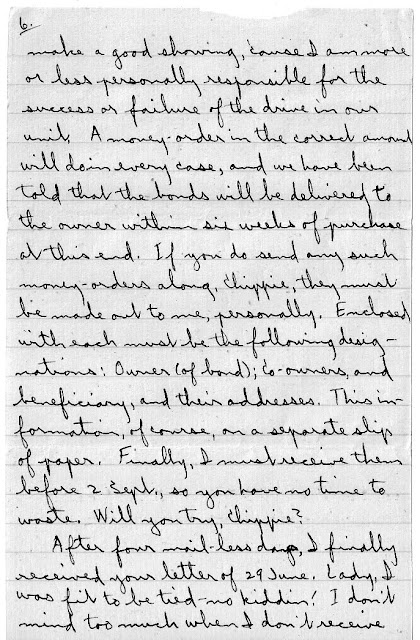 6.
make a good showing, 'cause I am more
or less personally responsible for the
success or failure of the drive in our
unit. A money-order in the correct amount
will do in every case, and we have been
told that the bonds will be delivered to
the owner within six weeks of purchase
at this end. If you do send any such
money-orders along, Chippie, they must
be made out to me, personally. Enclosed
with each must be the following desig-
nations: Owner (of bond); Co-owners, and
beneficiary, and their addresses. This in-
formation, of course, on a separate slip
of paper. Finally, I must receive them
before 2 Sept., so you have no time to
waste. Will you try, Chippie?
After four mail-less days, I finally
received your letter of 29 June. Lady, I
was fit to be tied - no kiddin'! I don't
mind too much when I don't receive